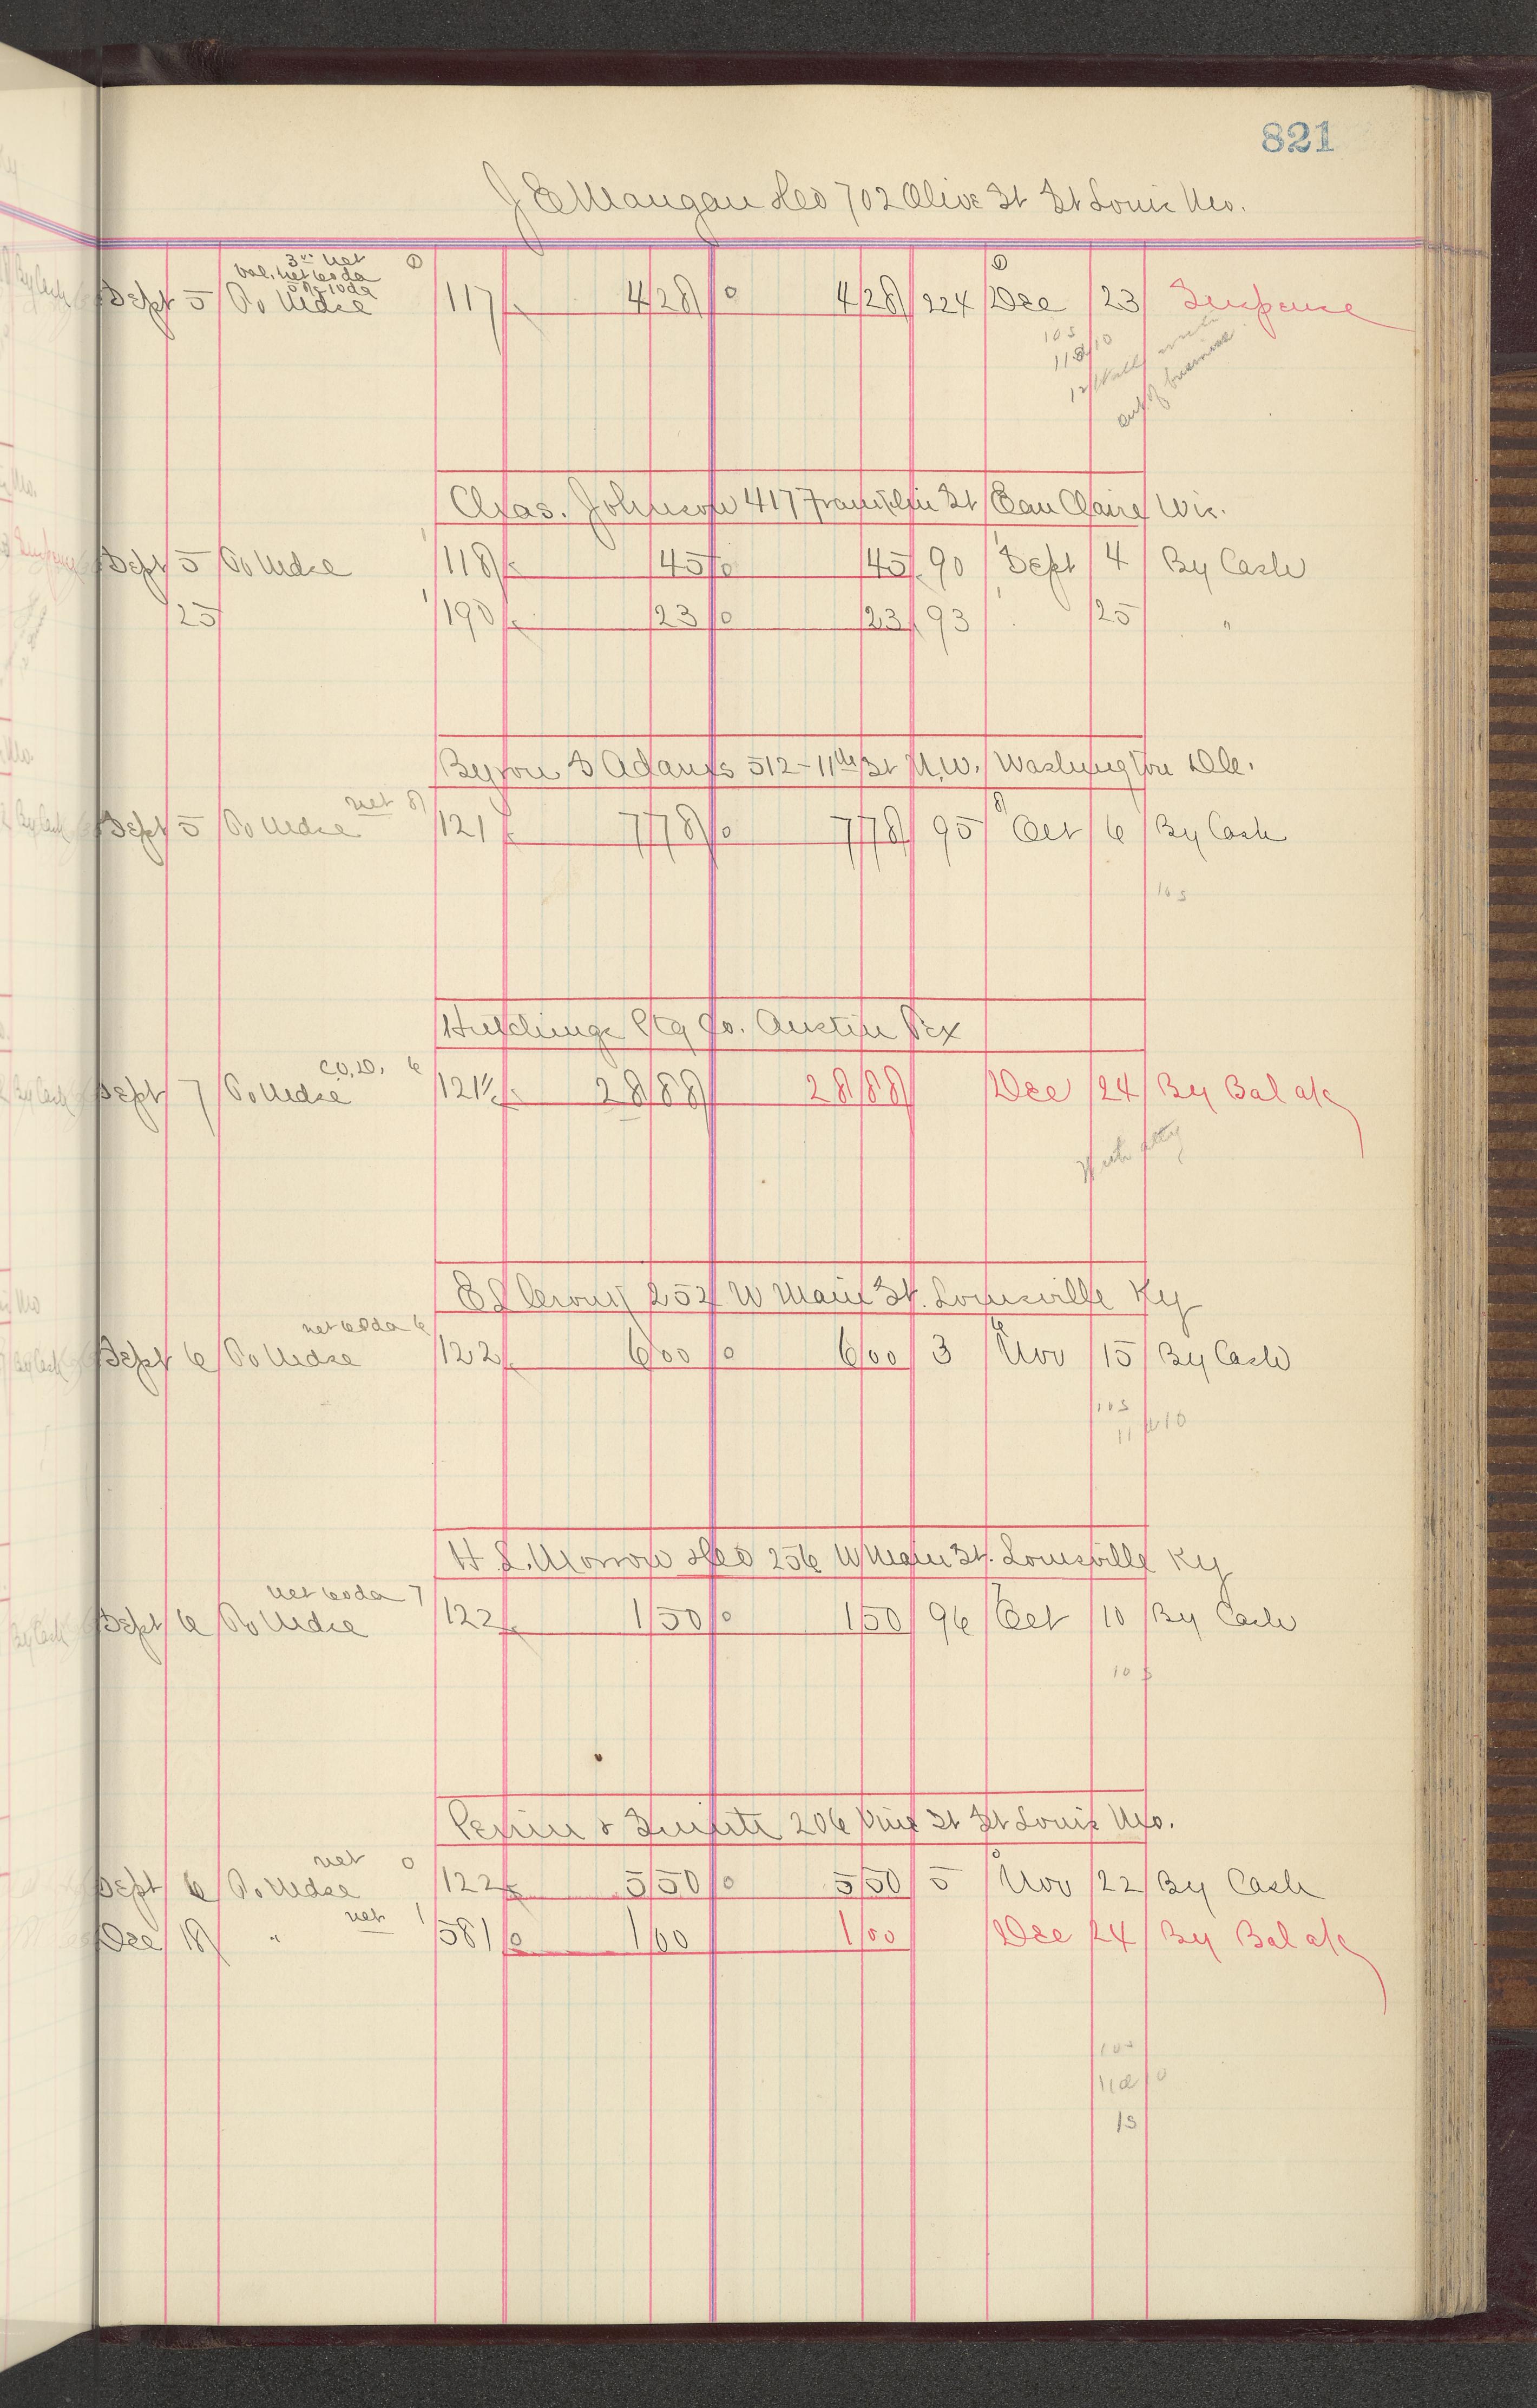 821
J E Mangan 702 Olive St St Louis Mo.
3 net
bal. net 60 da
5% 10 da
Sept 5 To Mdse 1 117 4 28 0 4 28 224 1 Dec 23 Suspense
10 s
11 10
12/ out of business
Chas. Johnson 417 Franklin St Eau Claire Wis.
Sept 5 To Mdse 1 118 45 0 45 90 1 Sept 4 By Cash
25 1 190 23 0 23 93 1 25 "
Byron S Adams 512-11th St N.W. Washington D.C.
net 8
Sept 5 To Mdse 121 7 78 0 7 78 95 8 Oct 6 By Cash
10 s
Hutchings Ptg Co. Austin Tex
C.O.D. 6
Sept 7 To Mdse 121½ 28 88 28 88 Dec 24 By Bal a/c
with atty
252 W Main St. Louisville Ky
net 60 da 6
Sept 6 To Mdse 122 6 00 0 6 00 3 6 Nov 15 By Cash
10 s
11 10
H L. Morrow 256 W Main St. Louisville Ky
net 60 da 7
Sept 6 To Mdse 122 1 50 0 1 50 96 7 Oct 10 By Cash
10 s
Perrin & Smith 206 Vine St St Louis Mo.
net 0
Sept 6 To Mdse 122 5 50 0 5 50 5 0 Nov 22 By Cash
net 1
Dec 18 " 581 0 1 00 1 00 Dec 24 By Bal a/c
10 s
11 0
1 s